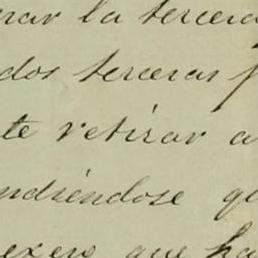 rar la tercera
dos terceras p
te retirar a
ndiéndose qu
exero que ha